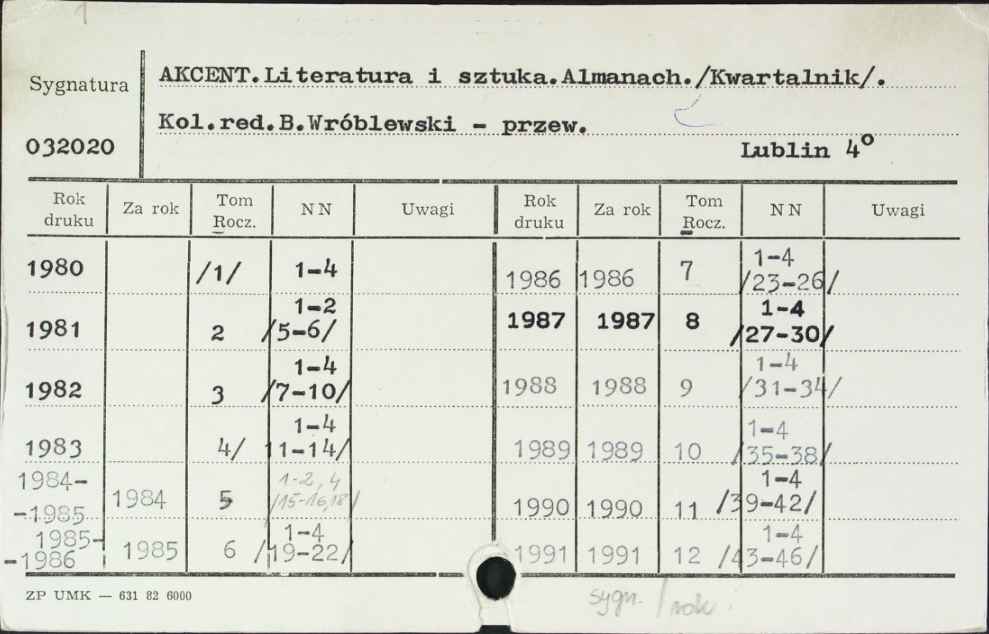 1
Sygnatura
032020
AKCENT.Literatura i sztuka.Almanach./Kwartalnik/.
Kol.red.B.Wróblewski - przew.
Lublin 4°
Rok druku | Za rok | Tom Rocz. | NN | Uwagi | Rok druku | Za rok | Tom Rocz. | NN | Uwagi
1980 /1/ 1-4
1981 2 1-2 /5-6/
1982 3 1-4 /7-10/
1983 4/ 1-4 11-14/
1984--1985 1984 5 1-2, 4 /15-16,18/
1985--1986 1985 6 1-4 /19-22/
1986 1986 7 1-4 /23-26/
1987 1987 8 1-4 /27-30/
1988 1988 9 1-4 /31-34/
1989 1989 10 1-4 /35-38/
1990 1990 11 1-4 /39-42/
1991 1991 12 1-4 /43-46/
ZP UMK — 631 82 6000
sygn. / rok.